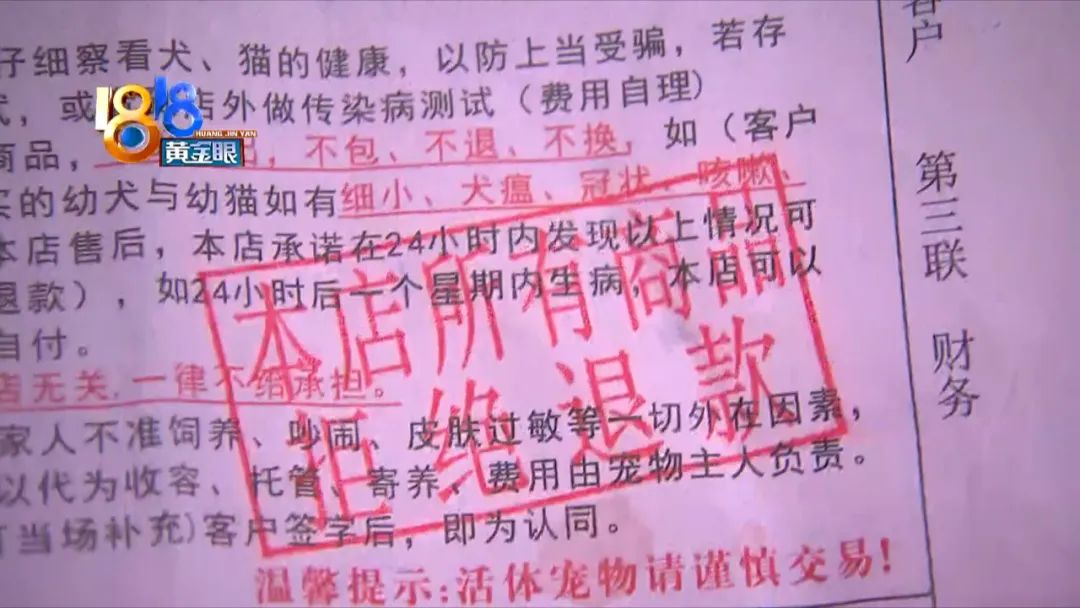 仔细察看犬、猫的健康，以防上当受骗，若存
式，或 店外做传染病测试（费用自理）
商品， 出，不包、不退、不换，如（客户
买的幼犬与幼猫如有细小、犬瘟、冠状、咳嗽、
本店售后，本店承诺在24小时内发现以上情况可
退款），如24小时后一个星期内生病，本店可以
自付。
店无关.一律不给承担。
家人不准饲养、吵闹、皮肤过敏等一切外在因素，
以代为收容、托管、寄养、费用由宠物主人负责。
当场补充)客户签字后，即为认同。
温馨提示:活体宠物请谨慎交易!
本店所有商品
拒绝退款
客户
第三联 财务
1818
HUANG JIN YAN
黄金眼